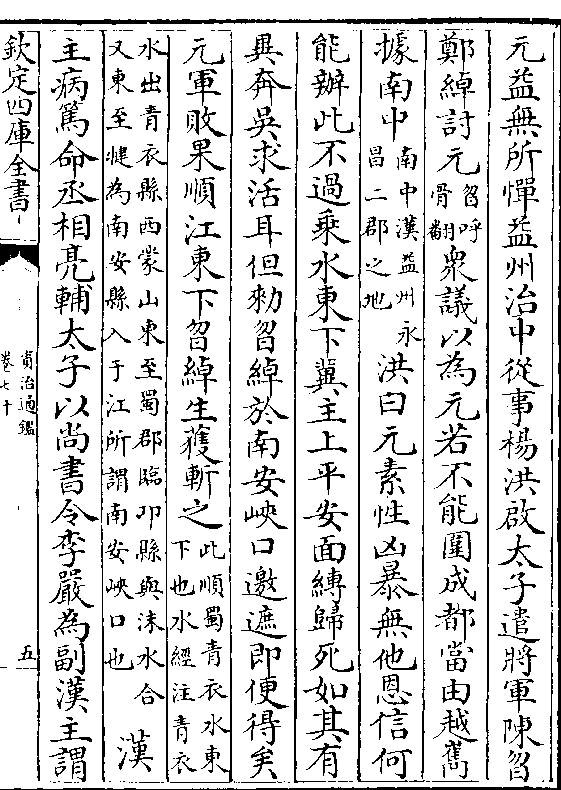 元益無所憚益州治中從事楊洪啟太子遣將軍陳曶
鄭綽討元曶呼骨翻衆議以為元若不能圍成都當由越嶲
據南中南中漢益州永昌二郡之地洪曰元素性凶暴無他恩信何
能辦此不過乗水東下冀主上平安面縛歸死如其有
異奔吳求活耳但勑曶綽於南安峽口邀遮即便得矣
元軍敗果順江東下曶綽生獲斬之此順蜀青衣水東下也水經注青衣
水出青衣縣西蒙山東至蜀郡臨卭縣與沫水合又東至犍為南安縣入于江所謂南安峽口也漢
主病篤命丞相亮輔太子以尚書令李嚴為副漢主謂
欽定四庫全書
資治通鑑
卷七十
五